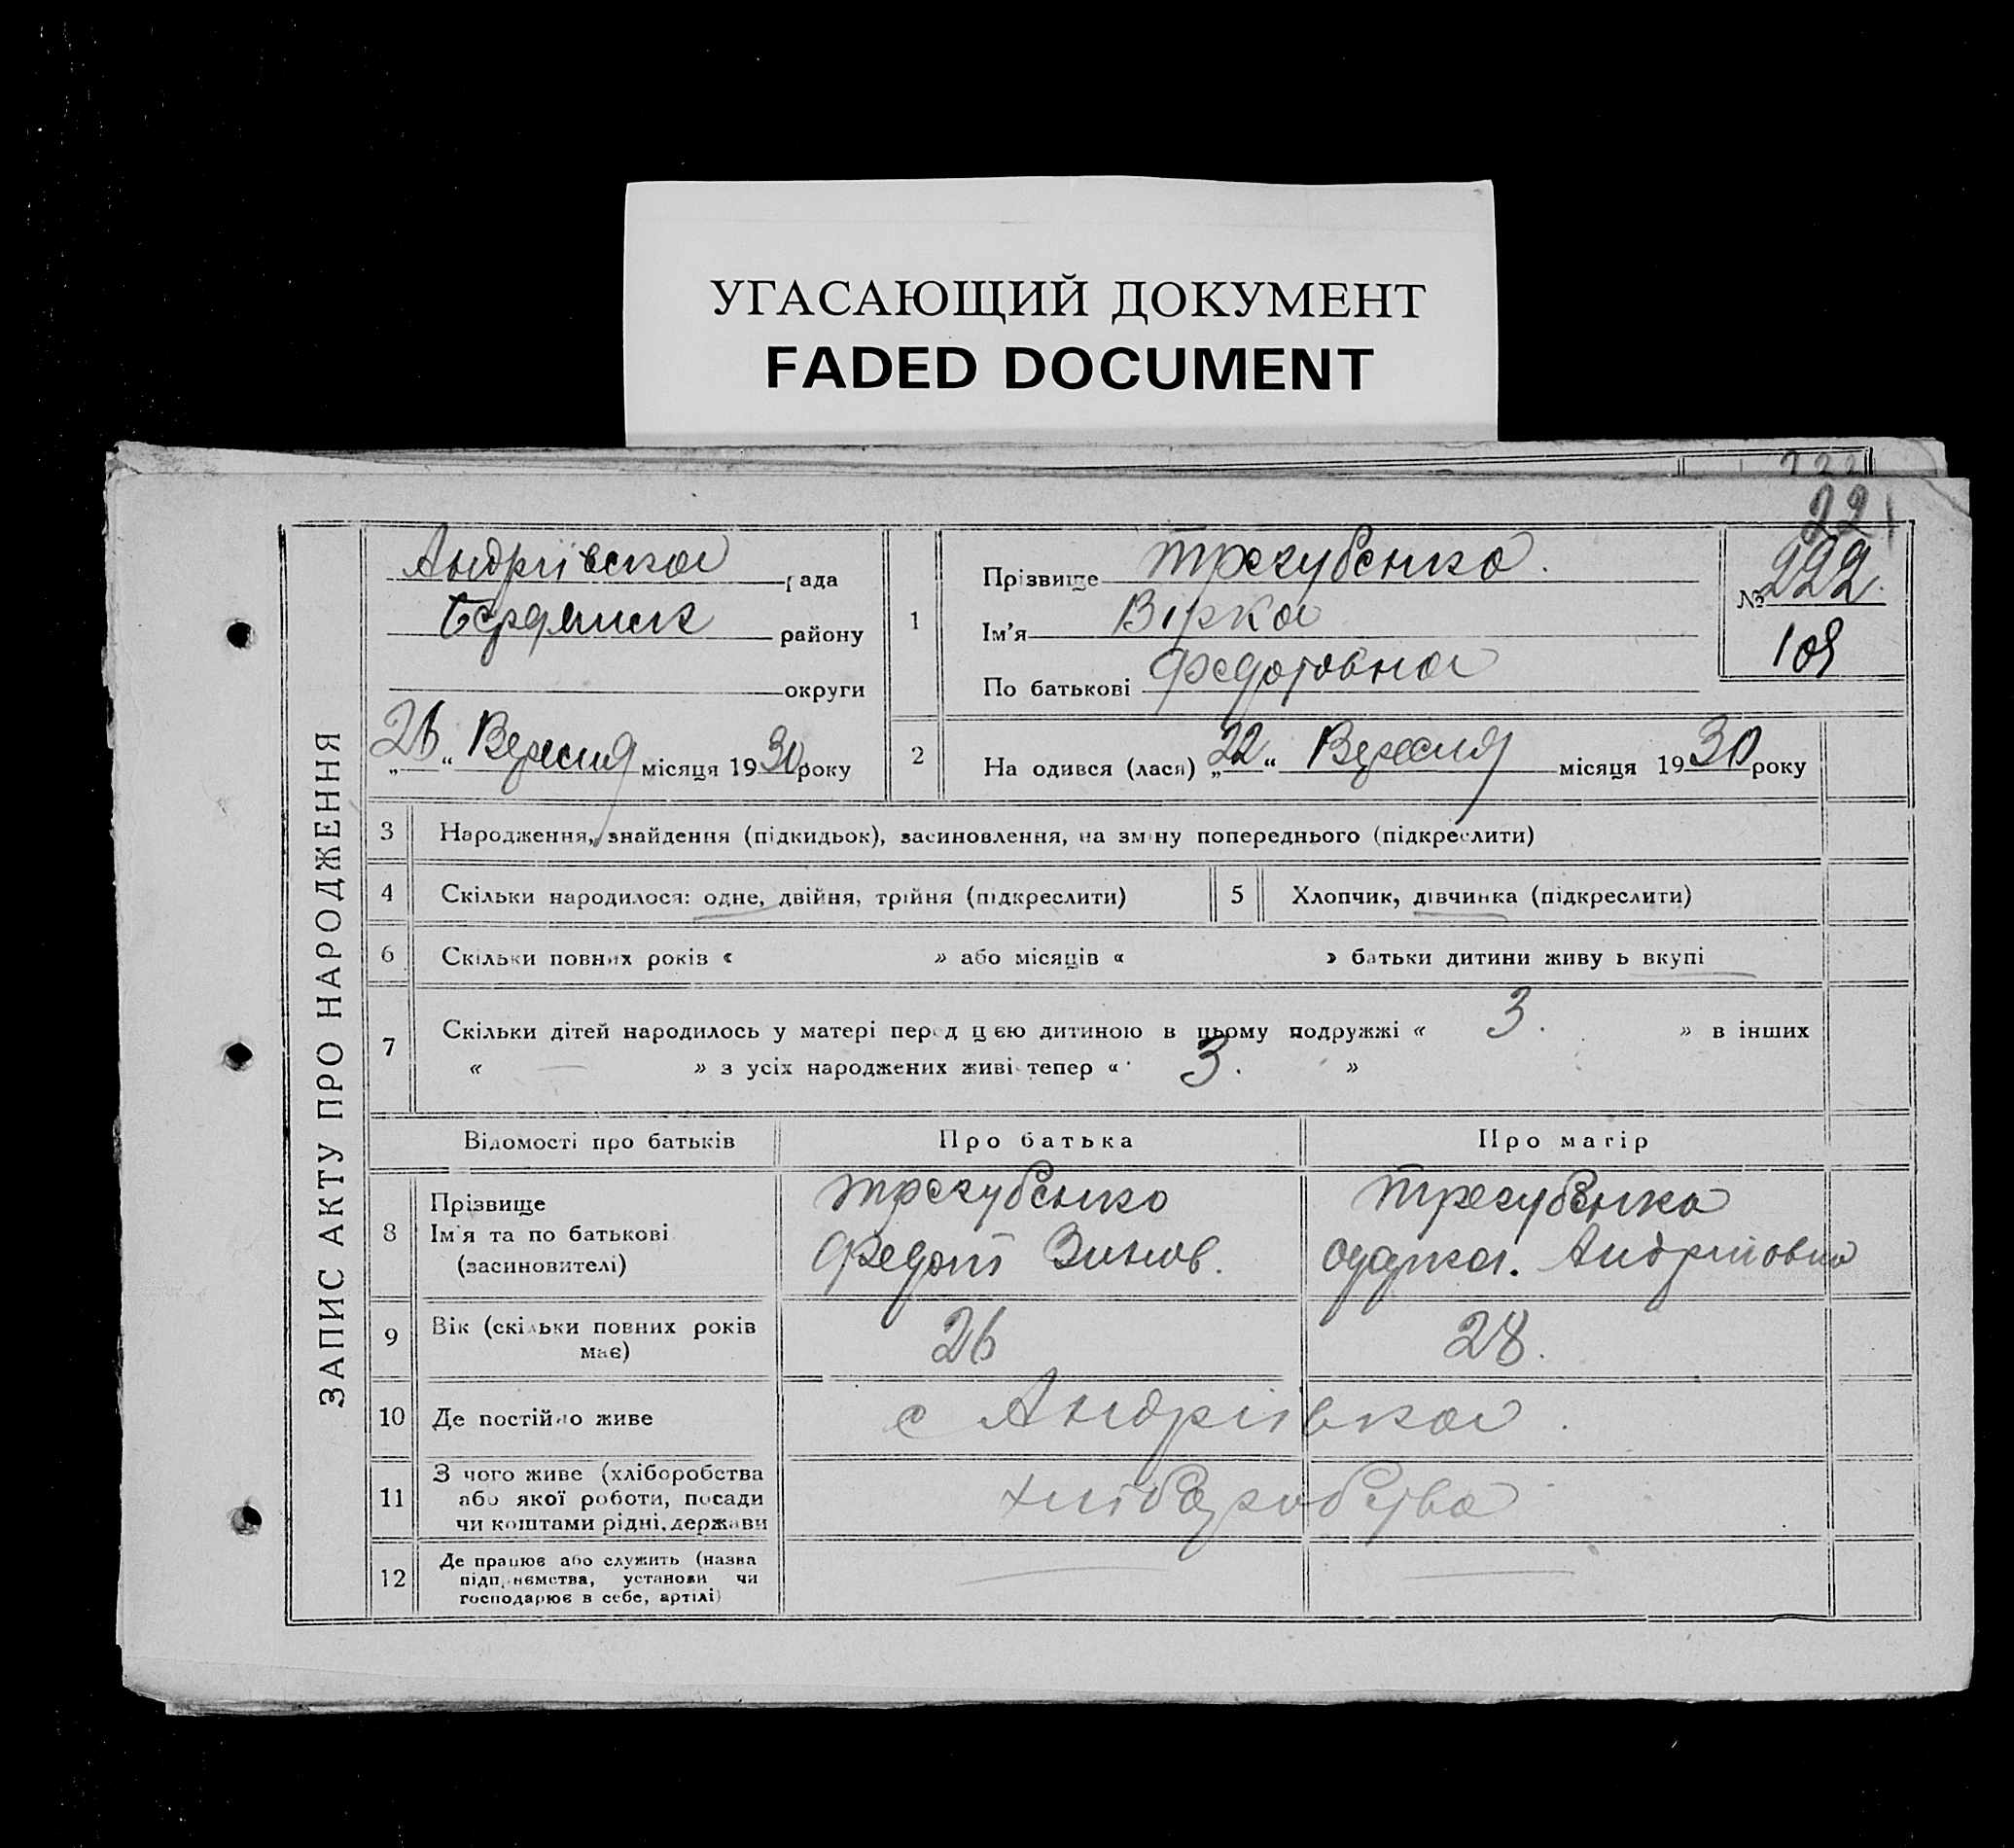 УГАСАЮЩИЙ ДОКУМЕНТ
FADED DOCUMENT
221
ЗАПИС АКТУ ПРО НАРОДЖЕННЯ
Андріївська рада
Бердянск району
округи
„26“ Вересня місяця 1930 року
1
Прізвище Трегубенко.
Ім'я Вірка
По батькові Федотовна
№ 222.
109
2 На одився (лася) „22“ Вересня місяця 1930 року
3 Народження, знайдення (підкидьок), засиновлення, на зміну попереднього (підкреслити)
4 Скільки народилося: одне, двійня, трійня (підкреслити)
5 Хлопчик, дівчинка (підкреслити)
6 Скільки повних років « » або місяців « » батьки дитини живу ь вкупі
7 Скільки дітей народилось у матері перед цією дитиною в цьому подружжі « 3. » в інших
« — » з усіх народжених живі тепер « 3. »
Відомості про батьків
Про батька
Про матір
8 Прізвище
Ім'я та по батькові
(засиновителі)
Трегубенко
Федот Зинов.
Трегубенко
Одарка. Андрійовна
9 Вік (скільки повних років
має)
26
28.
10 Де постійно живе
с Андріївка.
11 З чого живе (хліборобства
або якої роботи, посади
чи коштами рідні, держави
хліборобства
12 Де працює або служить (назва
підприємства, установи чи
господарює в себе, артілі)
— —